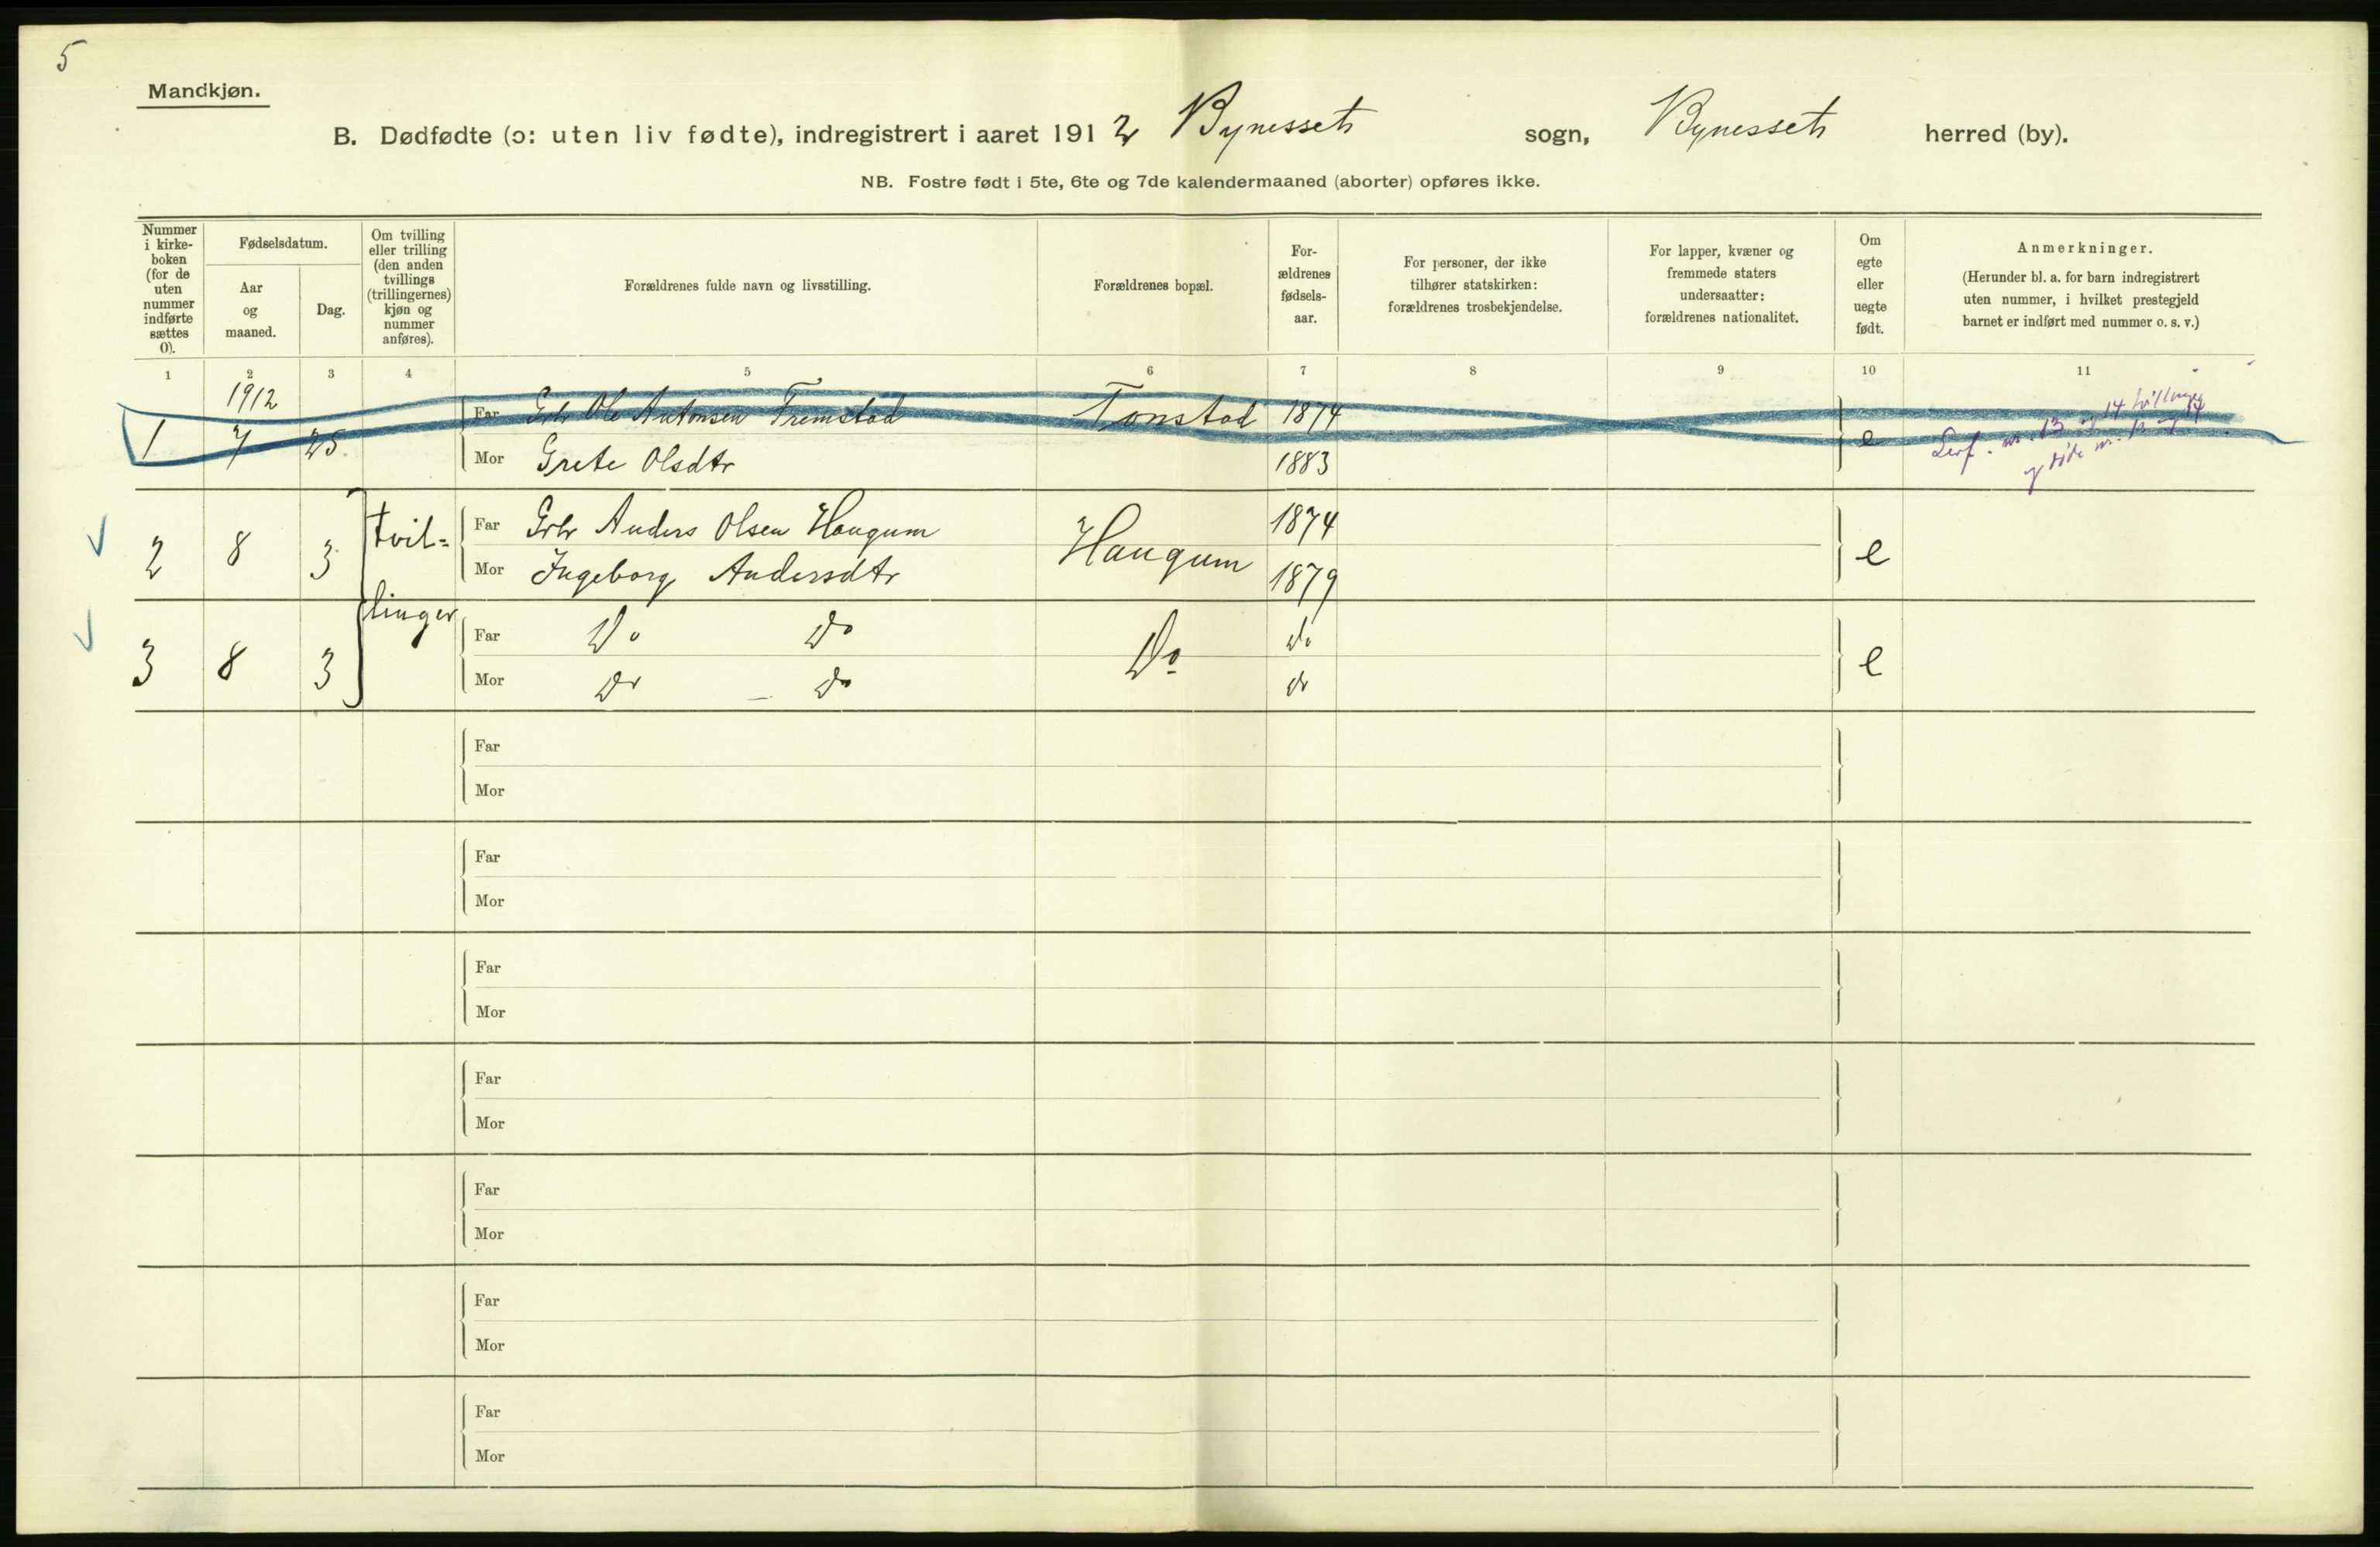 5
Mandkjøn.
B. Dødfødte (ɔ: uten liv fødte), indregistrert i aaret 1912 Bynessets sogn, Bynessets herred (by).
NB. Fostre født i 5te, 6te og 7de kalendermaaned (aborter) opføres ikke.
Nummer i kirke-boken (for de uten nummer indførte sættes 0).
Fødselsdatum.
Aar og maaned.
Dag.
Om tvilling eller trilling (den anden tvillings (trillingernes) kjøn og nummer anføres).
Forældrenes fulde navn og livsstilling.
Forældrenes bopæl.
For-ældrenes fødsels-aar.
For personer, der ikke tilhører statskirken: forældrenes trosbekjendelse.
For lapper, kvæner og fremmede staters undersaatter: forældrenes nationalitet.
Om egte eller uegte født.
Anmerkninger.
(Herunder bl. a. for barn indregistrert uten nummer, i hvilket prestegjeld barnet er indført med nummer o. s. v.)
1 2 3 4 5 6 7 8 9 10 11
1912
1 7 25 Far Grbr Ole Antonsen Fremstad Tonstad 1874 e nr. 13 og 14 tvillinger
Mor Grete Olsdtr 1883 og døde nr. 13 og 14
2 8 3 tvil= Far Grbr Anders Olsen Haugum Haugum 1874 e
Mor Ingeborg Andersdtr 1879
3 8 3 linger Far Do Do Do Do e
Mor Do - Do Do
Far
Mor
Far
Mor
Far
Mor
Far
Mor
Far
Mor
Far
Mor
Far
Mor